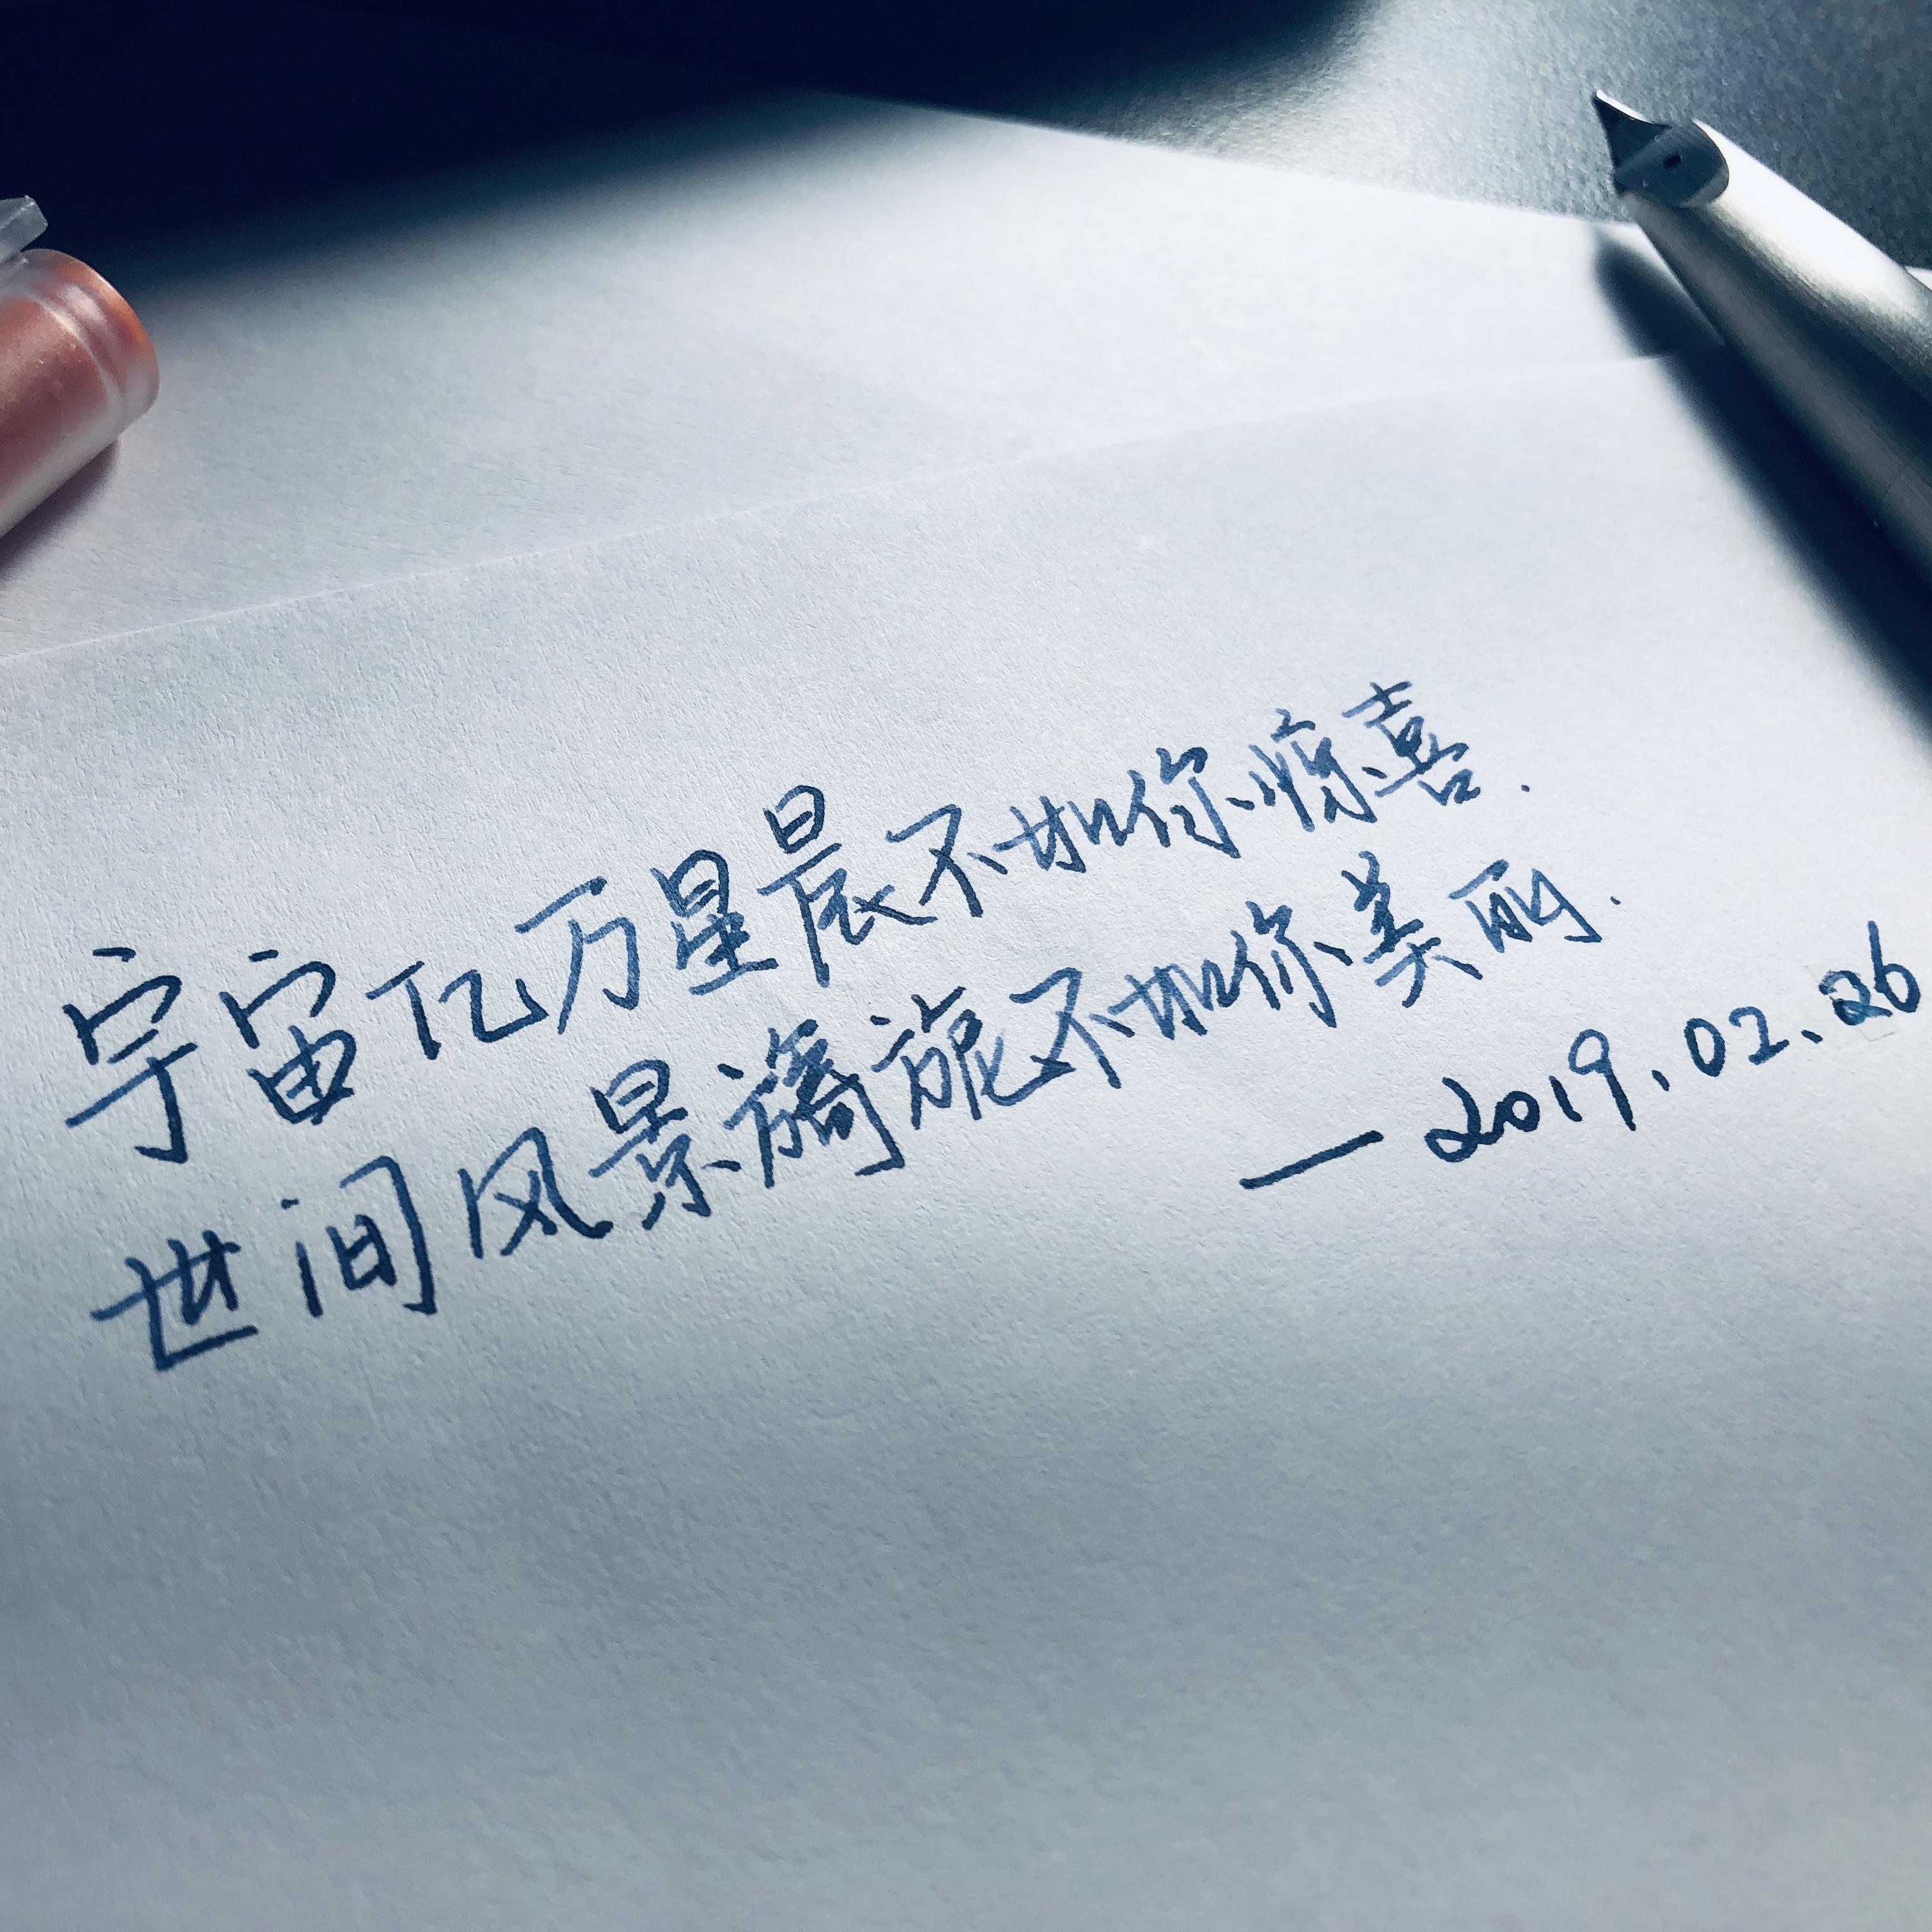 宇宙亿万星晨不如你惊喜.
世间风景旖旎不如你美丽.
—2019.02.26